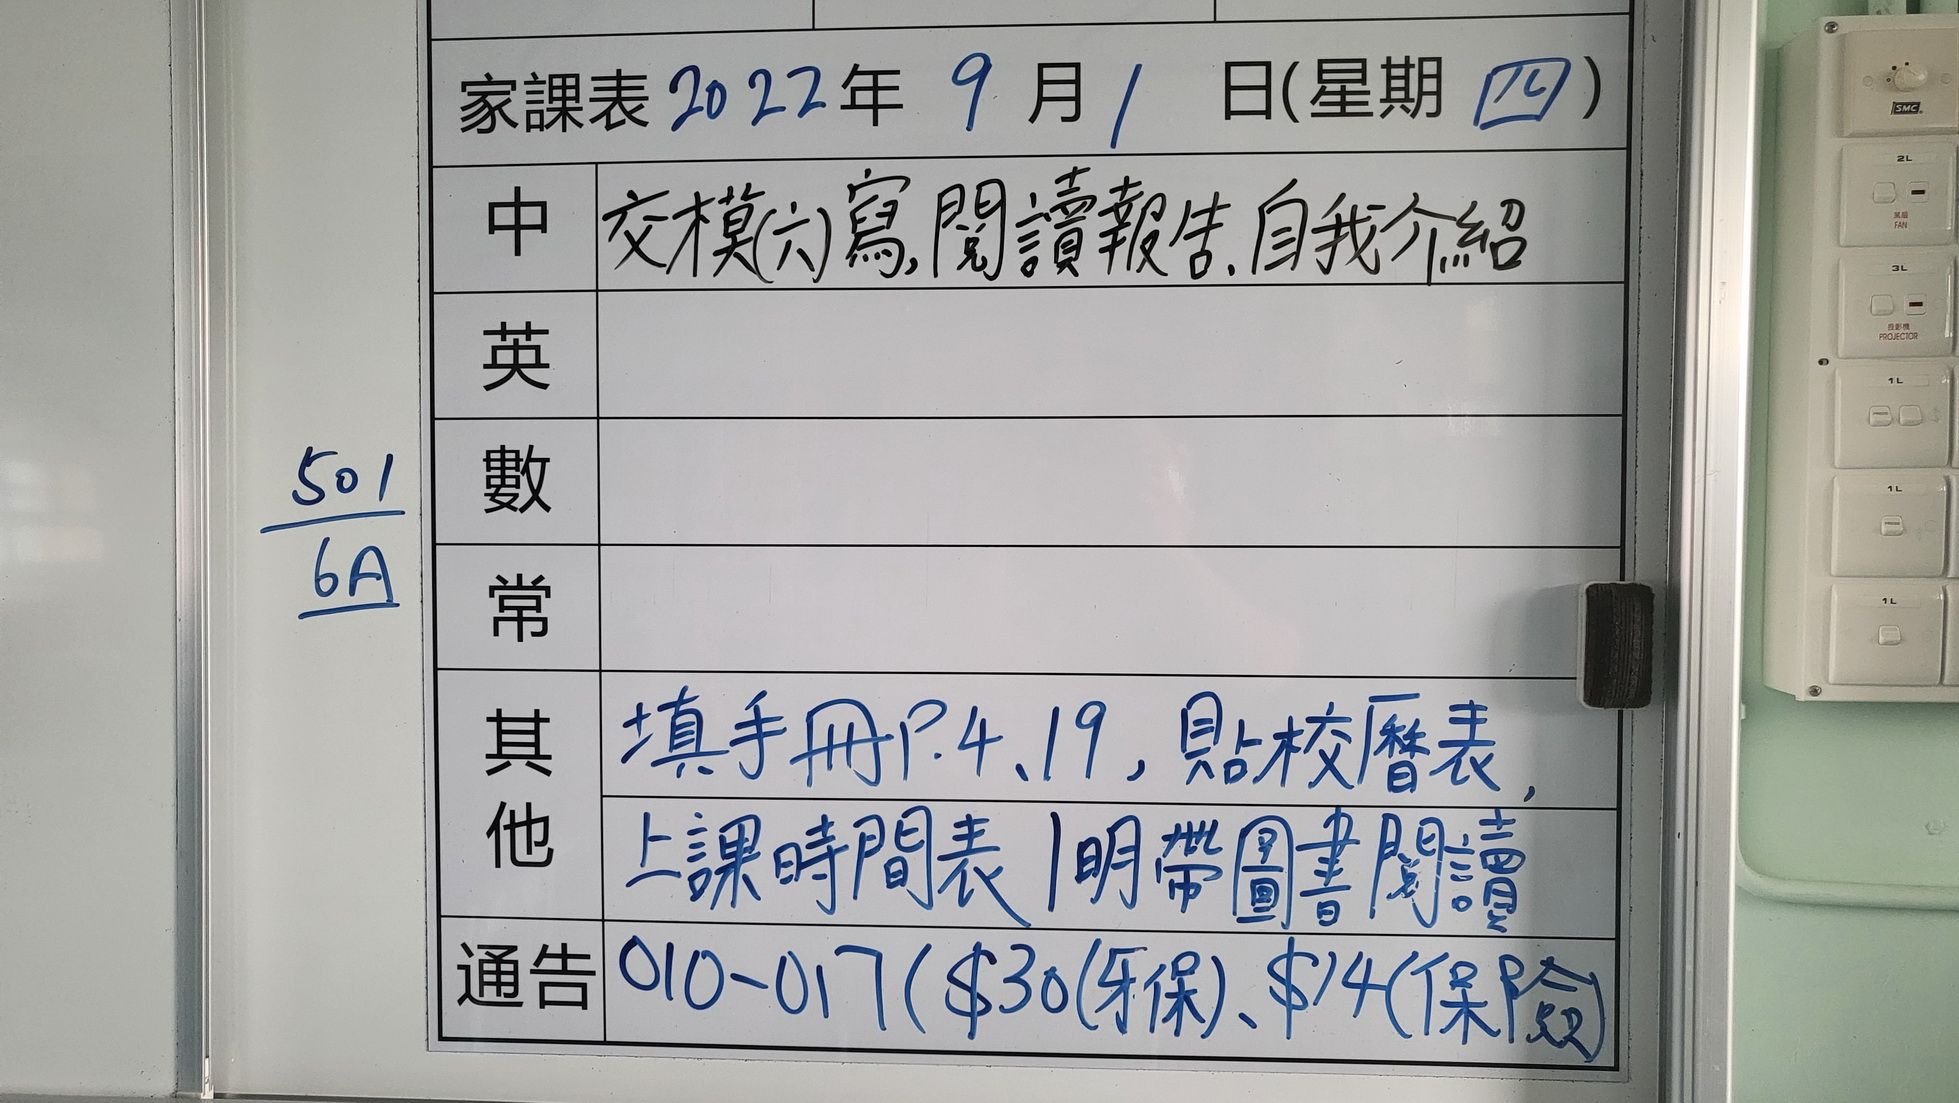 家課表 2022年 9月1日(星期四)
中 交模(六)寫,閱讀報告、自我介紹
英
數
501
6A
常
其他 填手冊P.4、19, 貼校曆表,
上課時間表 | 明帶圖書閱讀
通告 010~017( $30(牙保)、$14(保險)
SMC
2L
風扇
FAN
3L
投影機
PROJECTOR
1L
1L
1L